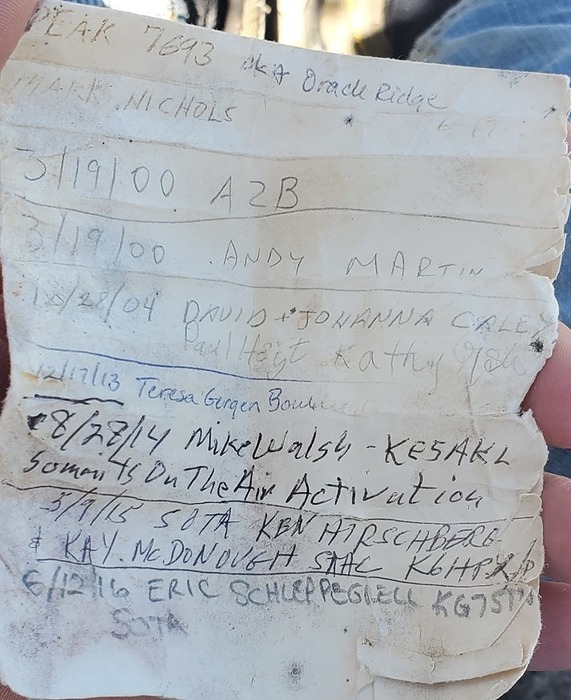 PEAK 7693 aka Oracle Ridge
MARK NICHOLS
3/19/00 AZB
3/19/00 ANDY MARTIN
DAVID + JOHANNA CALEY
Paul Kathy
12/17/13 Teresa Gergen
8/28/14 Mike Walsh - KE5AKL
Summits On The Air Activation
3/9/15 SOTA KEN HIRSCHBERG
& KAY McDONOUGH
6/12/16 ERIC SCHLEPPEGRELL
SOTA